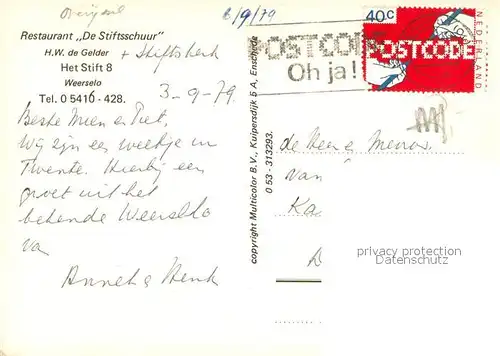 Overijssel
Restaurant „De Stiftsschuur”
+ Stiftskerk
H.W. de Gelder
Het Stift 8
Weerselo
Tel. 0 5410 - 428.
3-9-79.
Beste Mien & Piet,
Wij zijn een weekje in
Twente. Hierbij een
groet uit het
bekende Weerselo
van
Annet & Henk
copyright Multicolor B.V., Kuipersdijk 5 A, Enschede
0 53 - 313293.
6/9/79
POSTCODE
Oh ja!
40c
POSTCODE
NEDERLAND
de Heer & Mevrouw
van
Ka
privacy protection
Datenschutz